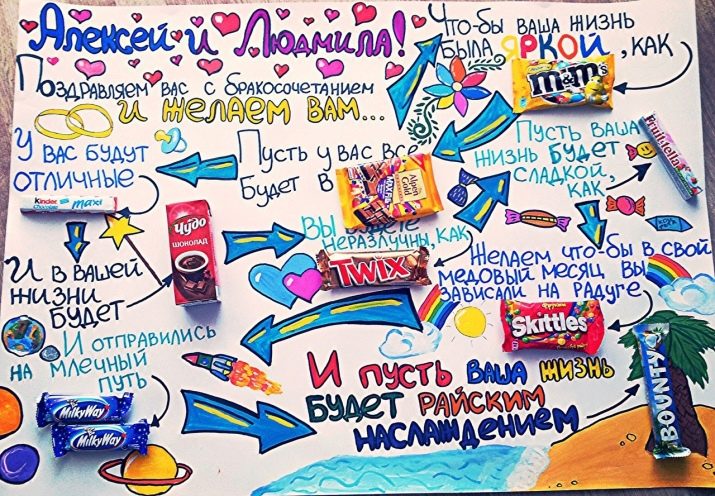 Алексей и Людмила!
Поздравляем вас с бракосочетанием
и желаем вам...
Что-бы ваша жизнь
была яркой, как
m&m's
Пусть ваша
жизнь будет
сладкой,
как
Fruittella
Пусть у вас все
будет в
Alpen Gold
У вас будут
отличные
Kinder
Chocolate maxi
И в вашей
жизни
будет
Чудо
шоколад
Вы будете
неразлучны, как
TWIX
Желаем что-бы в свой
медовый месяц вы
зависали на радуге
Skittles
И отправились
на млечный
путь
MilkyWay
MilkyWay
И пусть ваша жизнь
будет райским
наслаждением
BOUNTY